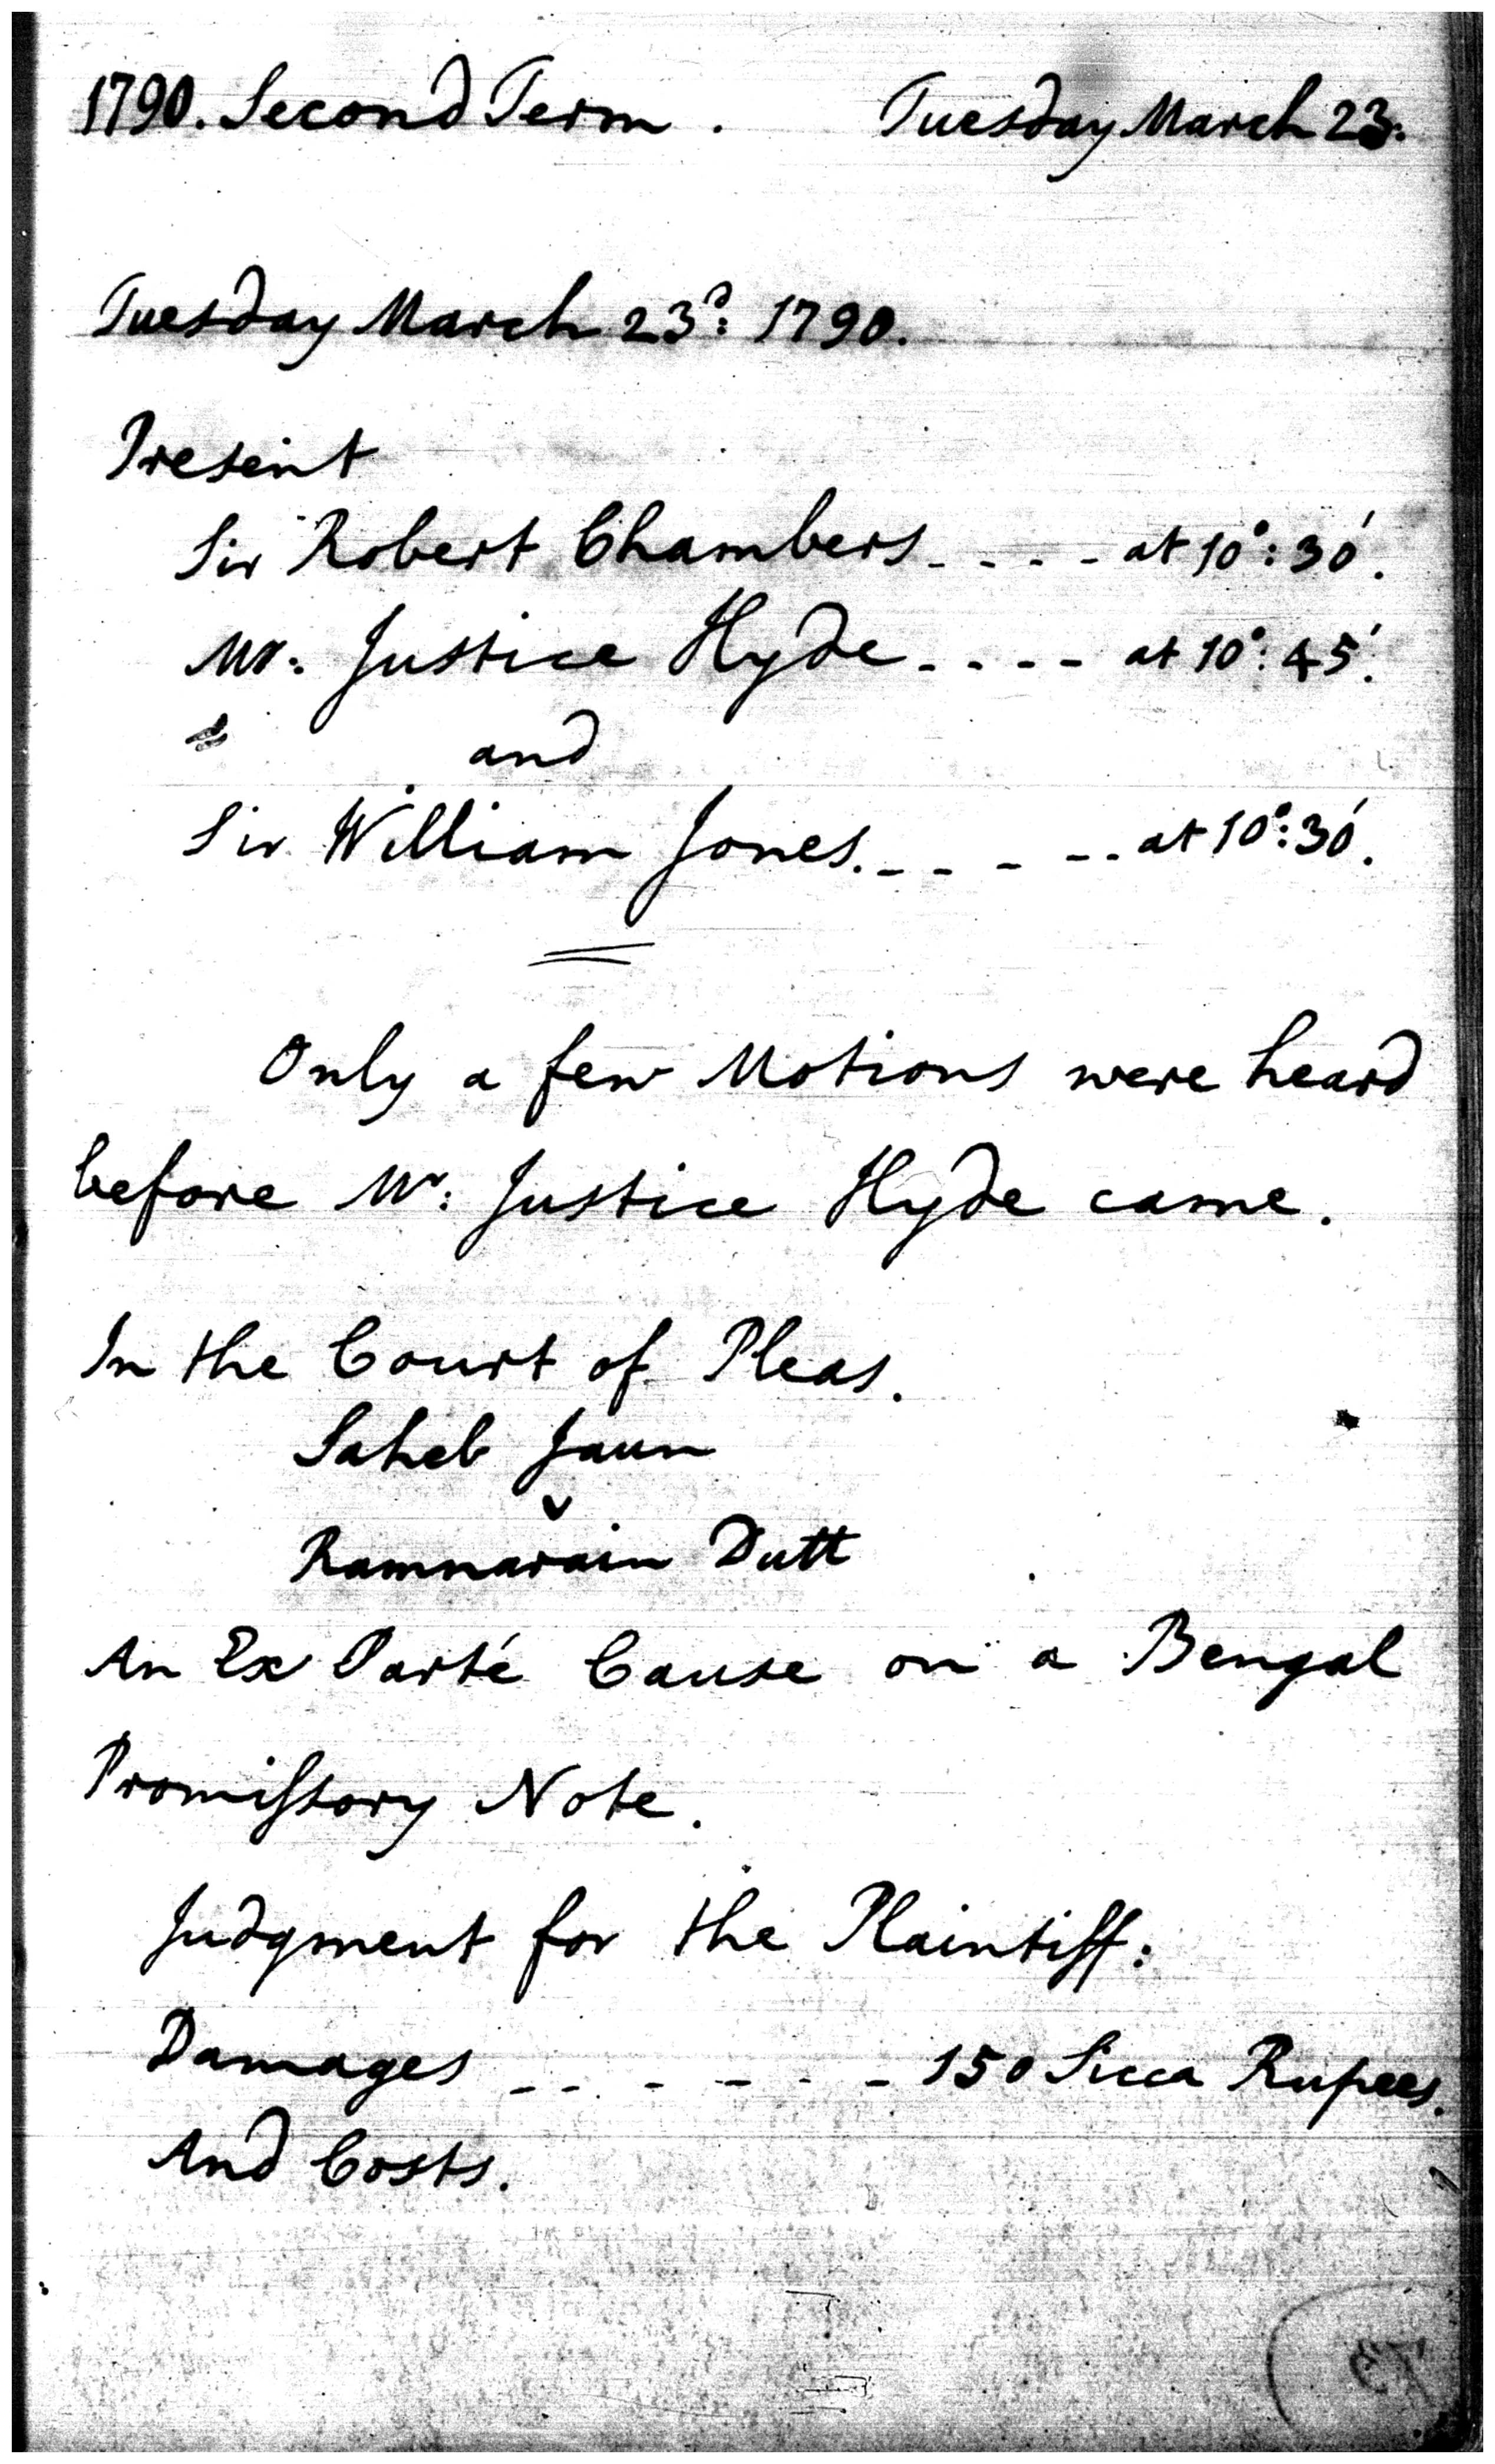 1790. Second Term. Tuesday March 23.
Tuesday March 23d: 1790.
Present
Sir Robert Chambers - - - - at 10°: 30'.
Mr: Justice Hyde - - - - at 10°: 45'.
and
Sir William Jones. - - - - - at 10°: 30'.
Only a few Motions were heard
before Mr: Justice Hyde came.
In the Court of Pleas.
Saheb Jaun
v
Ramnarain Dutt
An Ex Parté Cause on a Bengal
Promiſsory Note.
Judgment for the Plaintiff:
Damages - - - - - - - 150 Sicca Rupees.
And Costs.